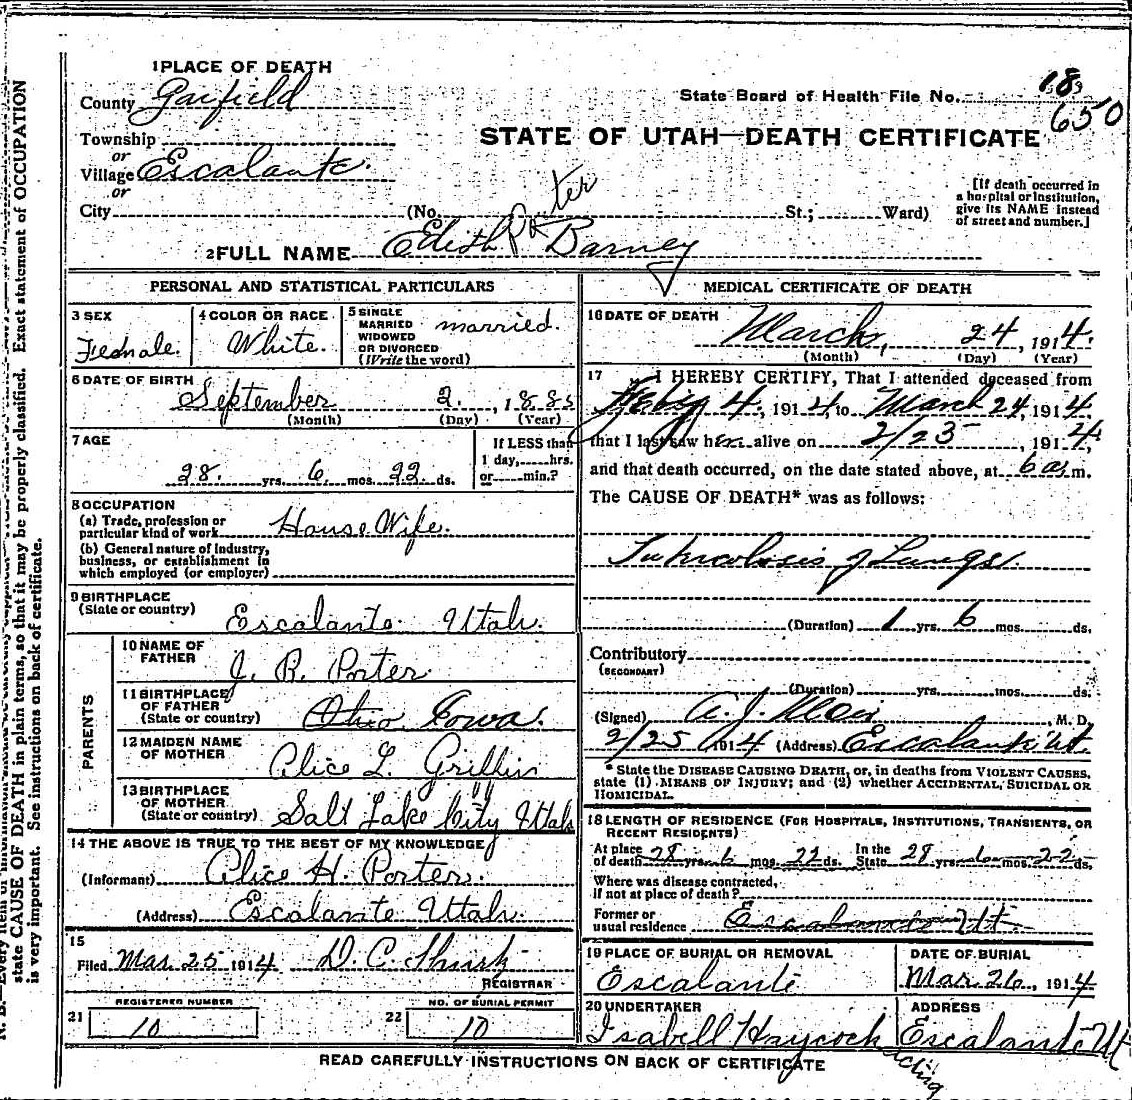 1 PLACE OF DEATH
County Garfield
State Board of Health File No. 18
650
Township
or
Village Escalante.
or
City
STATE OF UTAH—DEATH CERTIFICATE
(No. St.; Ward)
[If death occurred in a hospital or institution, give its NAME instead of street and number.]
2 FULL NAME Edith Porter Barney
PERSONAL AND STATISTICAL PARTICULARS
3 SEX Female.
4 COLOR OR RACE White.
5 SINGLE MARRIED WIDOWED OR DIVORCED (Write the word) married.
6 DATE OF BIRTH
September 2, 1885
(Month) (Day) (Year)
7 AGE
28 yrs. 6 mos. 22 ds.
If LESS than 1 day, hrs. or min.?
8 OCCUPATION
(a) Trade, profession or particular kind of work House Wife.
(b) General nature of industry, business, or establishment in which employed (or employer)
9 BIRTHPLACE
(State or country) Escalante Utah.
PARENTS
10 NAME OF FATHER J. R. Porter
11 BIRTHPLACE OF FATHER (State or country) Ohio Iowa.
12 MAIDEN NAME OF MOTHER Alice L. Griffin
13 BIRTHPLACE OF MOTHER (State or country) Salt Lake City Utah
14 THE ABOVE IS TRUE TO THE BEST OF MY KNOWLEDGE
(Informant) Alice H. Porter.
(Address) Escalante Utah.
15
Filed Mar 25 1914 D. C.
REGISTRAR
21 REGISTERED NUMBER 10
22 NO. OF BURIAL PERMIT 10
MEDICAL CERTIFICATE OF DEATH
16 DATE OF DEATH
March, 24, 1914.
(Month) (Day) (Year)
17 I HEREBY CERTIFY, That I attended deceased from
4, 1914, to March 24, 1914.
that I last saw her alive on 2/23, 1914
and that death occurred, on the date stated above, at 6 a. m.
The CAUSE OF DEATH* was as follows:
Tuberculosis of Lungs.
(Duration) 1 yrs. 6 mos. ds.
Contributory
(SECONDARY)
(Duration) yrs. mos. ds.
(Signed) A. J. , M. D.
2/25 1914 (Address) Escalante Ut.
* State the DISEASE CAUSING DEATH, or, in deaths from VIOLENT CAUSES, state (1) MEANS OF INJURY; and (2) whether ACCIDENTAL, SUICIDAL OR HOMICIDAL.
18 LENGTH OF RESIDENCE (FOR HOSPITALS, INSTITUTIONS, TRANSIENTS, OR RECENT RESIDENTS)
At place of death 28 yrs. 6 mos. 22 ds. In the State 28 yrs. 6 mos. 22 ds.
Where was disease contracted, if not at place of death?
Former or usual residence Escalante Ut.
19 PLACE OF BURIAL OR REMOVAL
Escalante
DATE OF BURIAL
Mar. 26, 1914
20 UNDERTAKER
Isabell Haycock acting
ADDRESS
Escalante Ut
READ CAREFULLY INSTRUCTIONS ON BACK OF CERTIFICATE
state CAUSE OF DEATH in plain terms, so that it may be properly classified. Exact statement of OCCUPATION
is very important. See instructions on back of certificate.